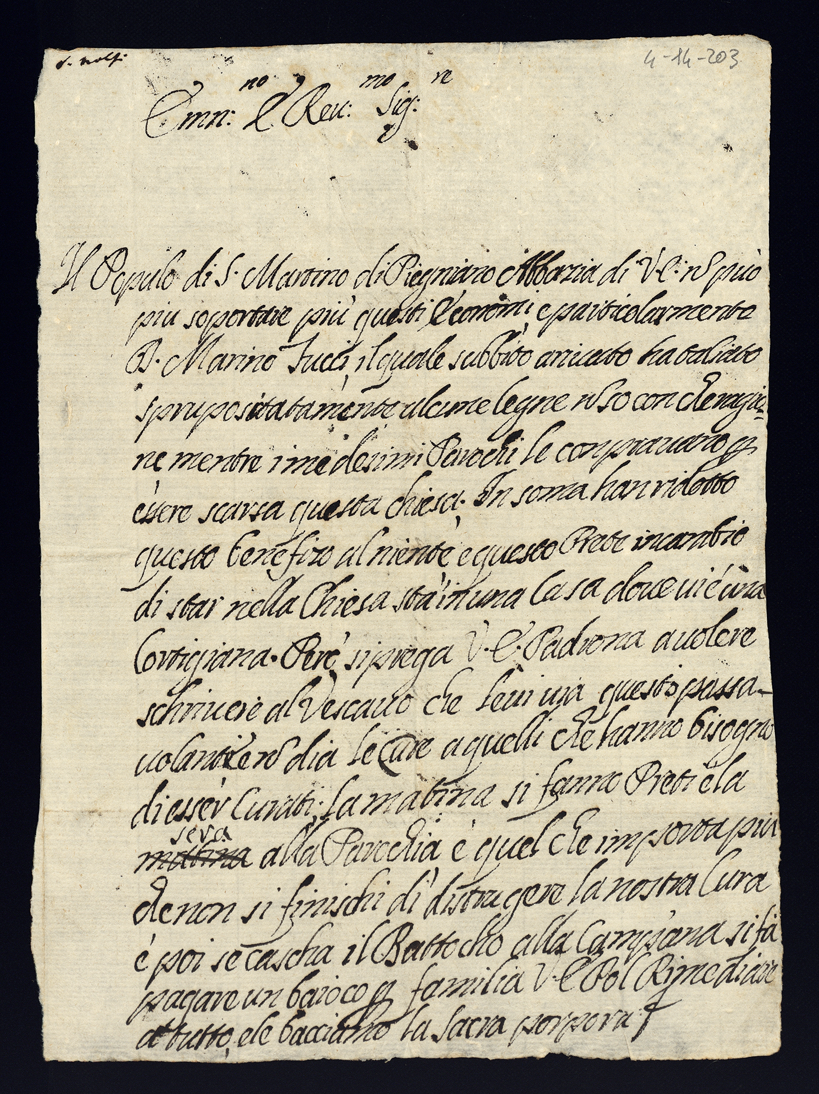 4-14-203
Emn: no E Reu: mo Sig: re
Il Populo di S. Martino di Piegniano Abbazia di V.E: nō può
piu soportare più questi Economi e particolarmente
D. Marino Tucci, il quale subbito arivato ha taliato
spropositatamente alcune legne nō so con che ragio=
ne mentre i medesimi Parochi le conpravano p
essere scarsa questa chiesa. In soma han ridotto
questo benefizo al niente e questo Prete incanbio
di star nella Chiesa stà in una Casa dove vi é una
Cortigiana. Però si prega V.E. Padrona a volere
schrivere al Vescavo che levi via questi passa-
volanti e nō dia le Cure a quelli che hanno bisogno
di esser Curati. La matina si fanno Preti e la
sera
matina alla Parochia e quel che importa più
che non si finischi di distrugere la nostra Cura
e poi se cascha il Battocho alla Campana si fà
pagare un baioco p familia V.E Pol Rimediare
a tutto, e le bacciamo la Sacra porpora